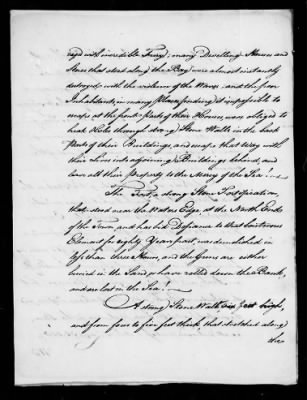 raged with incredible Fury; many Dwelling Houses and
Stores that stood along the Bay were almost instantly
destroyed, with the violence of the Waves and the poor
Inhabitants, in many Places finding it impossible to
escape at the front Part of their Houses, were obliged to
break Holes through strong Stone Walls in the back
Parts of their Buildings, and escape that way with
their Lives into adjoining Buildings behind, and
leave all their Property to the Mercy of the Sea:
The Fort, a strong Stone Fortification,
that stood near the Waters Edge, at the North Ends
of the Town, and has bid Defiance to that boisterous
Element for eighty Years past, was demolished in
less than three Hours, and the Guns are either
buried in the Sand, or have rolled down the Bank,
and are lost in the Sea!
A strong Stone Wall six feet high,
and from four to five feet thick that stretched along
the